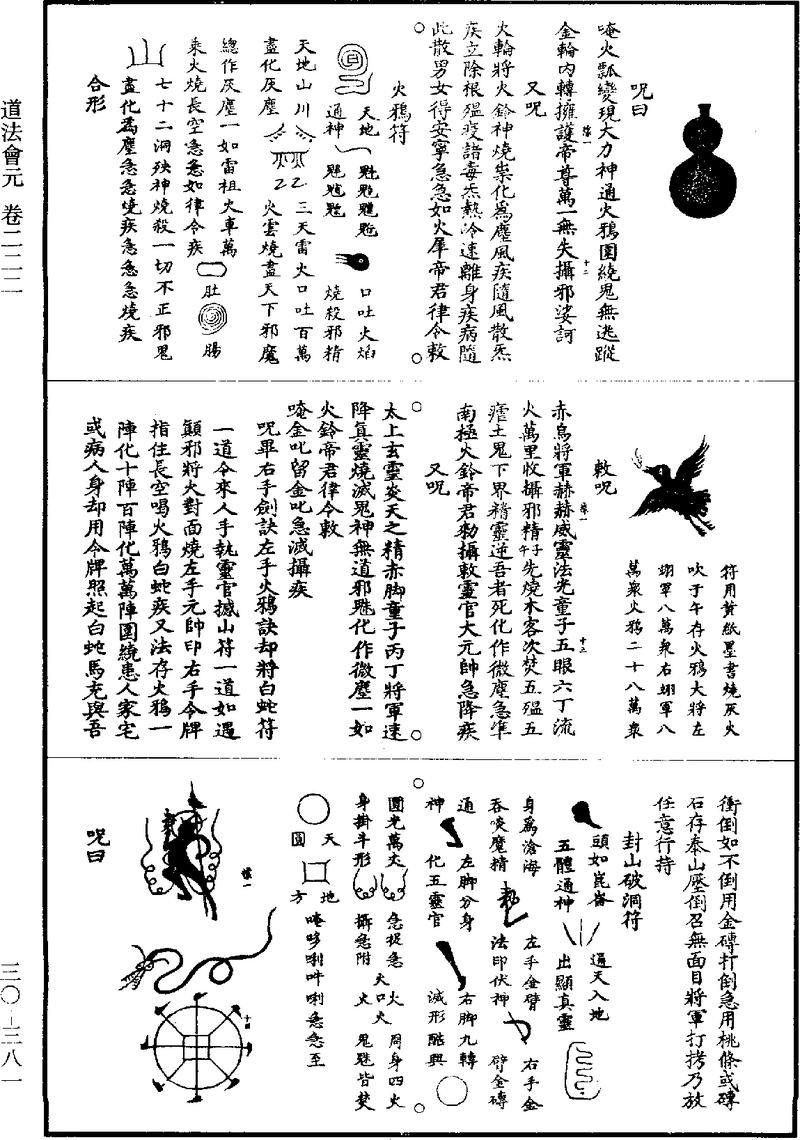 道法會元 卷二二二
呪曰
唵火瓢變現大力神通火鴉圍繞鬼無逃蹤
金輪內轉擁護帝尊萬一無失攝邪娑訶
又呪
火輪將火鈴神燒祟化為塵風疾隨風散炁
疾立除根瘟疫諸毒炁熱冷速離身疾病隨
此散男女得安寧急急如火犀帝君律令敕
火鴉符
天地
通神
口吐火焰
燒殺邪精
天地山川
三天雷火口吐百萬
盡化灰塵
火雲燒盡天下邪魔
總作灰塵一如雷祖火車萬
乘火燒長空急急如律令疾
肚
腸
七十二洞殃神燒殺一切不正邪鬼
盡化為塵急急燒疾急急急燒疾
合形
符用黃紙墨書燒灰火
吹于午存火鴉大將左
翊軍八萬眾右翊軍八
萬眾火鴉二十八萬眾
敕呪
赤烏將軍赫赫威靈法光童子五眼六丁流
火萬里收攝邪精先燒木客次焚五瘟五
瘧土鬼下界精靈逆吾者死化作微塵急準
南極火鈴帝君勑攝敕靈官大元帥急降疾
又呪
太上玄靈炎天之精赤腳童子丙丁將軍速
降真靈燒滅鬼神無道邪魅化作微塵一如
火鈴帝君律令敕
唵金叱留金叱急滅攝疾
呪畢右手劍訣左手火鴉訣却將白蛇符
一道令來人手執靈官撼山符一道如遇
顛邪將火對面燒左手元帥印右手令牌
指住長空喝火鴉白蛇疾又法存火鴉一
陣化十陣百陣化萬萬陣圍繞患人家宅
或病人身却用令牌照起白蛇馬充與吾
衝倒如不倒用金磚打倒急用桃條或磚
石存泰山壓倒召無面目將軍打拷乃放
任意行持
封山破洞符
頭如崑崙
五體通神
通天入地
出顯真靈
身為滄海
吞啖魔精
左手金臂
法印伏神
右手金
臂金磚
通
神
左腳分身
化五靈官
右腳九轉
滅形酷與
圓光萬丈
身掛斗形
急捉急
攝急附
火
火口火
火
周身四火
鬼魅皆焚
天
圓
地
方
唵哆唎吽唎急急至
呪曰
三〇—三八一